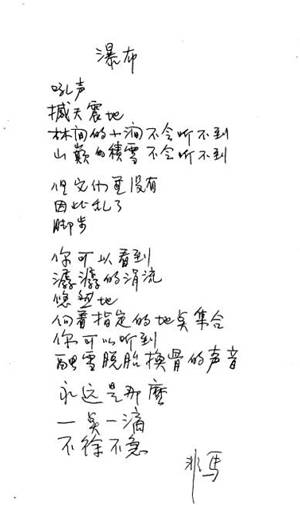 瀑布
吼声
撼天震地
林间的小涧不会听不到
山巅的積雪不会听不到
但它们並没有
因此乱了
脚步
你可以看到
潺潺的涓流
悠起地
向着指定的地点集合
你可以听到
融雪脱胎換骨的声音
永远是那麽
一点一滴
不徐不急
非马